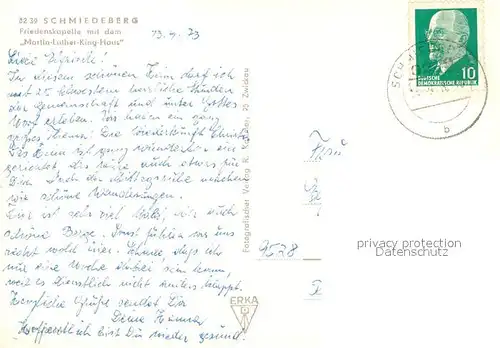 8239 SCHMIEDEBERG
Friedenskapelle mit dem
„Martin-Luther-King-Haus"
13.4.73
Liebe
In diesem schönen Heim darf ich
mit 25 Schwestern herrliche Stunden
der Gemeinschaft und unter Gottes
Wort erleben. Wir haben ein ganz
großes Thema: Die Wiederkunft Christi
Das Heim ist ganz wunderschön ein
gerichtet, das wäre auch etwas für
Dich. Nach der Mittagsruhe machen
wir schöne Wanderungen.
Hier ist sehr viel Wald, wie auch
schöne Berge. Sonst fühlen wir uns
recht wohl hier. Schade, daß ich
nur eine Woche dabei sein kann,
weil es dienstlich nicht anders klappt.
Herzliche Grüße sendet Dir
Deine
Hoffentlich bist Du wieder gesund!
Fotografischer Verlag R. Zwickau
ERKA
DEUTSCHE
DEMOKRATISCHE REPUBLIK
10
b
Frau
9528
privacy protection
Datenschutz